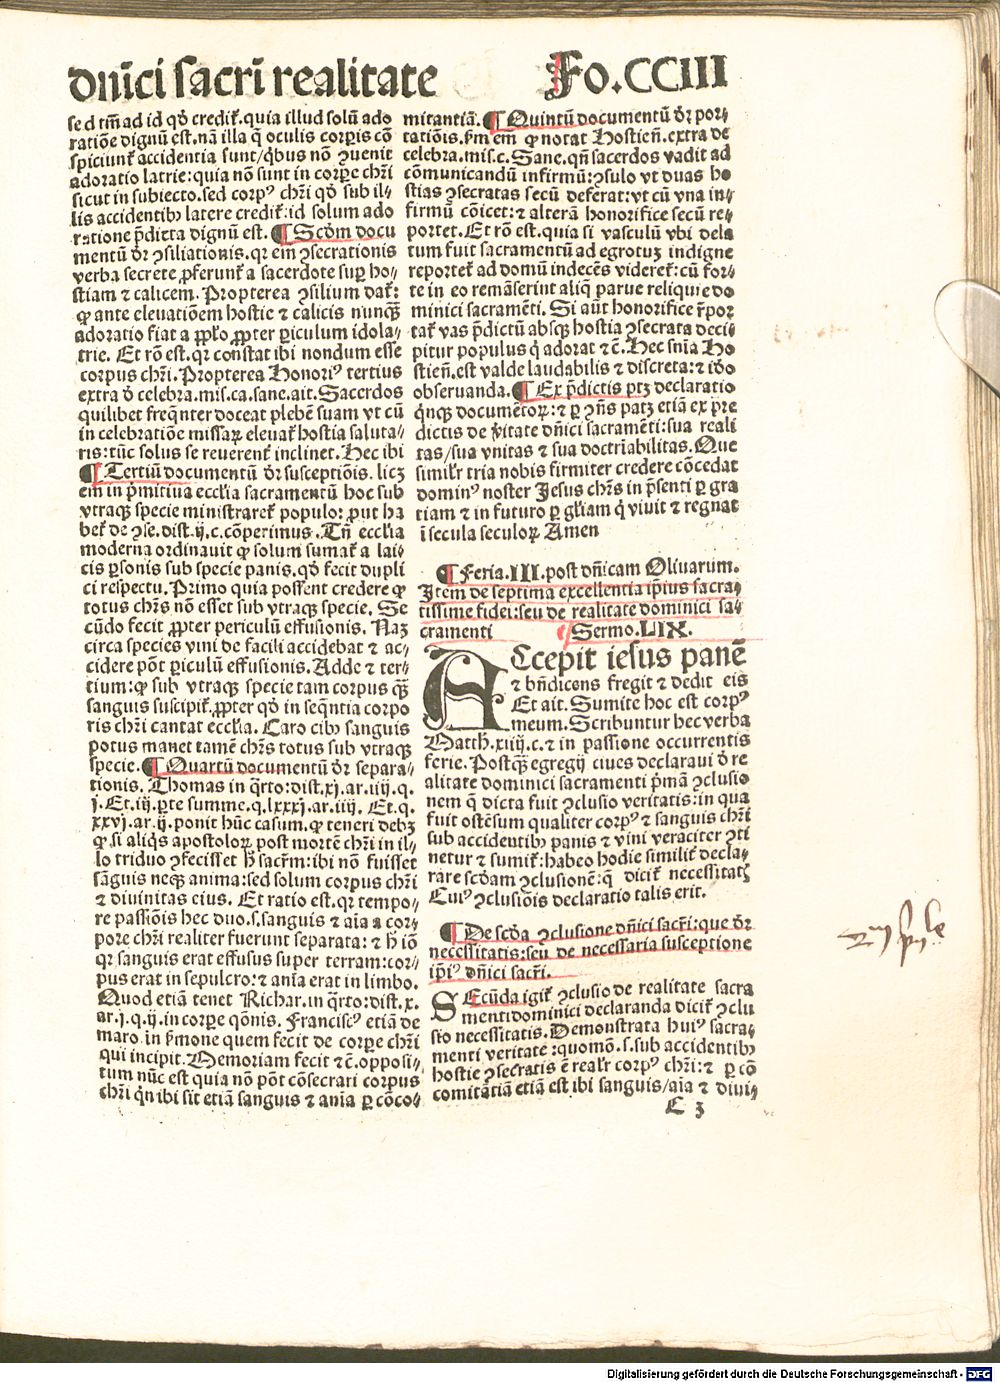 dnīci sacri realitate Fo.CCIII
sed tm̄ ad id qd̓ credit̄. quia illud solū ado
ratiōe dignū est. nā illa q̄ oculis corporis cō
spiciunt̄ accidentia sunt/q̄bus nō ꝯuenit
adoratio latrie: quia nō sunt in corpore chr̄i
sicut in subiecto. sed corpꝰ chr̄i qd̓ sub il⸗
lis accidentibꝫ latere credit̄: id solum ado
ratione p̄dicta dignū est. ¶ Scd̓m docu
mentū dr̄ ꝯsiliationis. qꝛ em̄ ꝯsecrationis
verba secrete ꝓferunt̄ a sacerdote suꝑ ho⸗
stiam ⁊ calicem. Propterea ꝯsilium dat̄:
ꝙ ante eleuatiōem hostie ⁊ calicis nunqͣꝫ
adoratio fiat a ppl̓o ꝓpter ꝑiculum idola⸗
trie. Et rō est. qꝛ constat ibi nondum esse
corpus chr̄i. Propterea Honoriꝰ tertius
extra d̓ celebra. mis. ca. sane. ait. Sacerdos
quilibet freq̄nter doceat plebē suam vt cū
in celebratiōe missaꝝ eleuat̄ hostia saluta⸗
ris: tūc solus se reuerent̄ inclinet. Hec ibi
¶ Tertiū documentū dr̄ susceptiōis. licꝫ
em̄ in p̄mitiua eccl̓ia sacramentū hoc sub
vtraqꝫ specie ministraret̄ populo: ꝓut ha
bet̄ de ꝯse. dist. ij. c. cōperimus. Tn̄ eccl̓ia
moderna ordinauit ꝙ solum sumat̄ a lai⸗
cis ꝑsonis sub specie panis. qd̓ fecit dupli
ci respectu. Primo quia possent credere ꝙ
totus chr̄s nō esset sub vtraqꝫ specie. Se
cūdo fecit ꝓpter periculū effusionis. Naꝫ
circa species vini de facili accidebat ⁊ ac⸗
cidere pōt ꝑiculū effusionis. Adde ⁊ ter⸗
tium: ꝙ sub vtraqꝫ specie tam corpus qͣꝫ
sanguis suscipit̄. ꝓpter qd̓ in seq̄ntia corpo
ris chr̄i cantat eccl̓ia. Caro cibꝰ sanguis
potus manet tamē chr̄s totus sub vtraqꝫ
specie. ¶ Quartū documentū dr̄ separa⸗
tionis. Thomas in q̄rto: dist. xj. ar. iij. q.
j. Et. iij. ꝑte summe. q. lxxxj. ar. iiij. Et. q.
xxvj. ar. ij. ponit hūc casum. ꝙ teneri debꝫ
ꝙ si aliq̄s apostoloꝝ post mortē chr̄i in il⸗
lo triduo ꝯfecisset h̓ sacr̄m: ibi nō fuisset
sānguis neqꝫ anima: sed solum corpus chr̄i
⁊ diuinitas eius. Et ratio est. qꝛ tempo⸗
re passiōis hec duo. s. sanguis ⁊ aīa a cor⸗
pore chr̄i realiter fuerunt separata: ⁊ h̓ iō
qꝛ sanguis erat effusus super terram: cor⸗
pus erat in sepulcro: ⁊ anīa erat in limbo.
Quod etiā tenet Richar. in q̄rto: dist. x.
ar. j. q. ij. in corpore qōnis. Franciscꝰ etiā de
maro. in ẜmone quem fecit de corpore chr̄i
qui incipit. Memoriam fecit ⁊c̄. opposi⸗
tum nūc est quia nō pōt cōsecrari corpus
chr̄i qͥn ibi sit etiā sanguis ⁊ anīa ꝑ cōco⸗
mitantiā. ¶ Quintū documentū dr̄ por⸗
tatiōis. ẜm em̄ ꝙ notat Hostien̄. extra de
celebra. mis. c. Sane. qn̄ sacerdos vadit ad
cōmunicandū infirmū: ꝯsulo vt duas ho
stias ꝯsecratas secū deferat: vt cū vna in⸗
firmū cōicet: ⁊ alterā honorifice secū re⸗
portet. Et rō est. quia si vasculū vbi dela
tum fuit sacramentū ad egrotuꝫ indigne
reportet̄ ad domū indecēs videret̄: cū for⸗
te in eo remāserint aliq̄ parue reliquie do
minici sacramēti. Si aūt honorifice r̄por
tat̄ vas p̄dictū absqꝫ hostia ꝯsecrata deci⸗
pitur populus qͥ adorat ⁊c̄. Hec sn̄ia Ho
stien̄. est valde laudabilis ⁊ discreta: ⁊ iō
obseruanda. ¶ Ex p̄dictis ptꝫ declaratio
qͥnqꝫ documētoꝝ: ⁊ ꝑ ꝯn̄s patꝫ etiā ex pre
dictis de ꝟitate dn̄ici sacramēti: sua reali
tas/sua vnitas ⁊ sua doctriabilitas. Que
simil̓r tria nobis firmiter credere cōcedat
dominꝰ noster Jesus chr̄s in p̄senti ꝑ gra
tiam ⁊ in futuro ꝑ gl̓iam qͥ viuit ⁊ regnat
ī secula seculoꝝ Amen
¶ Feria. III. post dn̄icam Oliuarum.
Item de septima excellentia ip̄ius sacra⸗
tissime fidei: seu de realitate dominici sa⸗
cramenti Sermo. LIX.
ACcepit iesus panē
⁊ bn̄dicens fregit ⁊ dedit eis
Et ait. Sumite hoc est corpꝰ
meum. Scribuntur hec verba
Matth. xxiij. c. ⁊ in passione occurrentis
ferie. Postqͣꝫ egregij ciues declaraui d̓ re
alitate dominici sacramenti p̄mā ꝯclusio
nem q̄ dicta fuit ꝯclusio veritatis: in qua
fuit ostēsum qualiter corpꝰ ⁊ sanguis chr̄i
sub accidentibꝫ panis ⁊ vini veraciter ꝯti
netur ⁊ sumit̄: habeo hodie similit̄ decla⸗
rare scd̓am ꝯclusionē: q̄ dicit̄ necessitatꝭ
Cuiꝰ ꝯclusiōis declaratio talis erit.
¶ De scd̓a ꝯclusione dn̄ici sacr̄i: que dr̄
necessitatis: seu de necessaria susceptione
ip̄iꝰ dn̄ici sacr̄i.
SEcūda igit̄ ꝯclusio de realitate sacra
menti dominici declaranda dicit̄ ꝯclu
sio necessitatis. Demonstrata huiꝰ sacra⸗
menti veritate: quomō. s. sub accidentibꝫ
hostie ꝯsecratis ē real̓r corpꝰ chr̄i: ⁊ ꝑ cō
comitātiā etiā est ibi sanguis/aīa ⁊ diui⸗
C 3
Digitalisierung gefördert durch die Deutsche Forschungsgemeinschaft - DFG